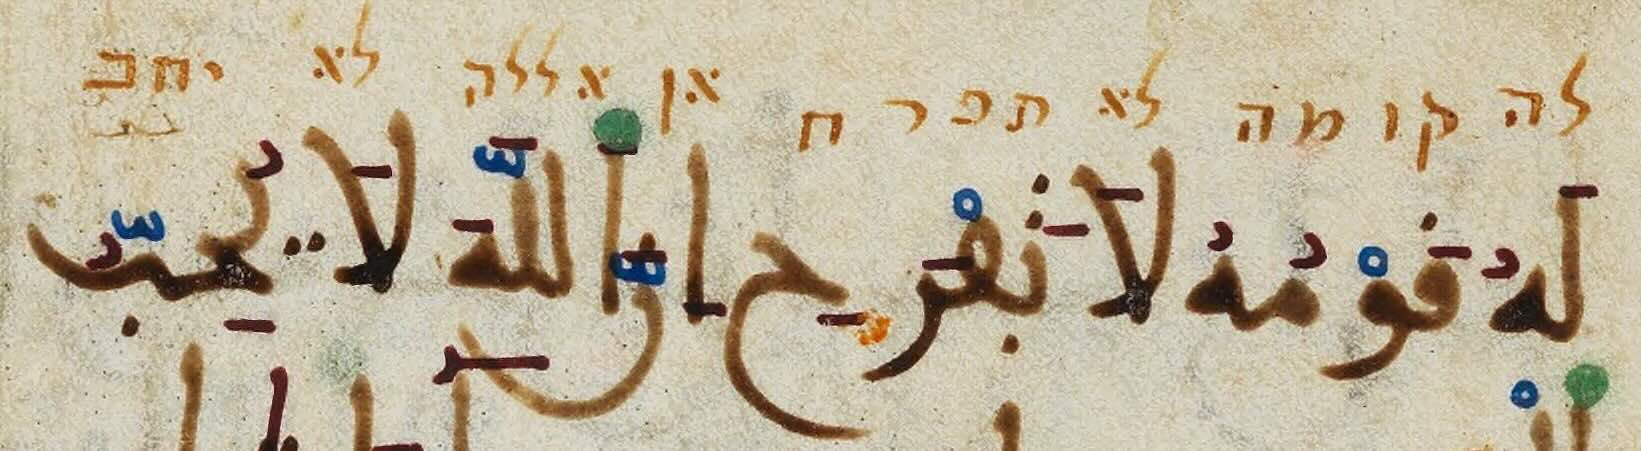 לה קומה לא תפרח אן אללה לא יחב
لَهُ قَوْمُهُ لَا تَفْرَحِ اِنَّ اَللَّهَ لَا يُحِبُّ